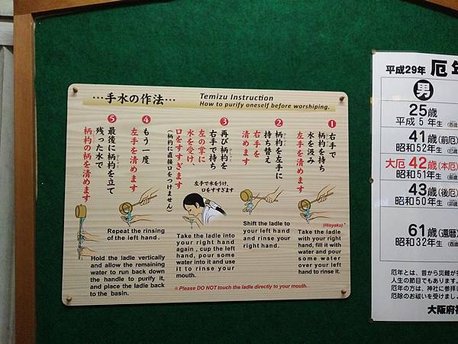 …手水の作法…
Temizu Instruction
How to purify oneself before worshiping.
1
右手で
柄杓を持ち
水を汲み
左手を清めます
2
柄杓を左手に
持ち替え
右手を
清めます
3
再び柄杓を
右手で持ち
左の掌に
水を受け、
口をすすぎます
(柄杓に直接口をつけません)
左手で水をうけ、
口をすすぎます
4
もう一度
左手を清めます
5
最後に柄杓を立て
残った水で
柄杓の柄を清めます
(Hisyaku)
Take the ladle
with your right
hand, fill it with
water and pour
some water
over your left
hand to rinse it.
Shift the ladle to
your left hand
and rinse your
right hand.
Take the ladle into
your right hand
again , cup the left
hand, pour some
water into it and use
it to rinse your
mouth.
Repeat the rinsing
of the left hand.
Hold the ladle vertically
and allow the remaining
water to run back down
the handle to purify it,
and place the ladle back
to the basin.
Please DO NOT touch the ladle directly to your mouth.
平成29年 厄年
男
25歳
平成5年生
41歳 (前厄)
昭和52年生
大厄 42歳 (本厄)
昭和51年生
43歳 (後厄)
昭和50年生
61歳 (還暦)
昭和32年生
厄年とは、昔から災難が
人生の節目でもあります。
厄年の方は、神社に参拝し
厄除のお祓いを受けましょう
大阪府